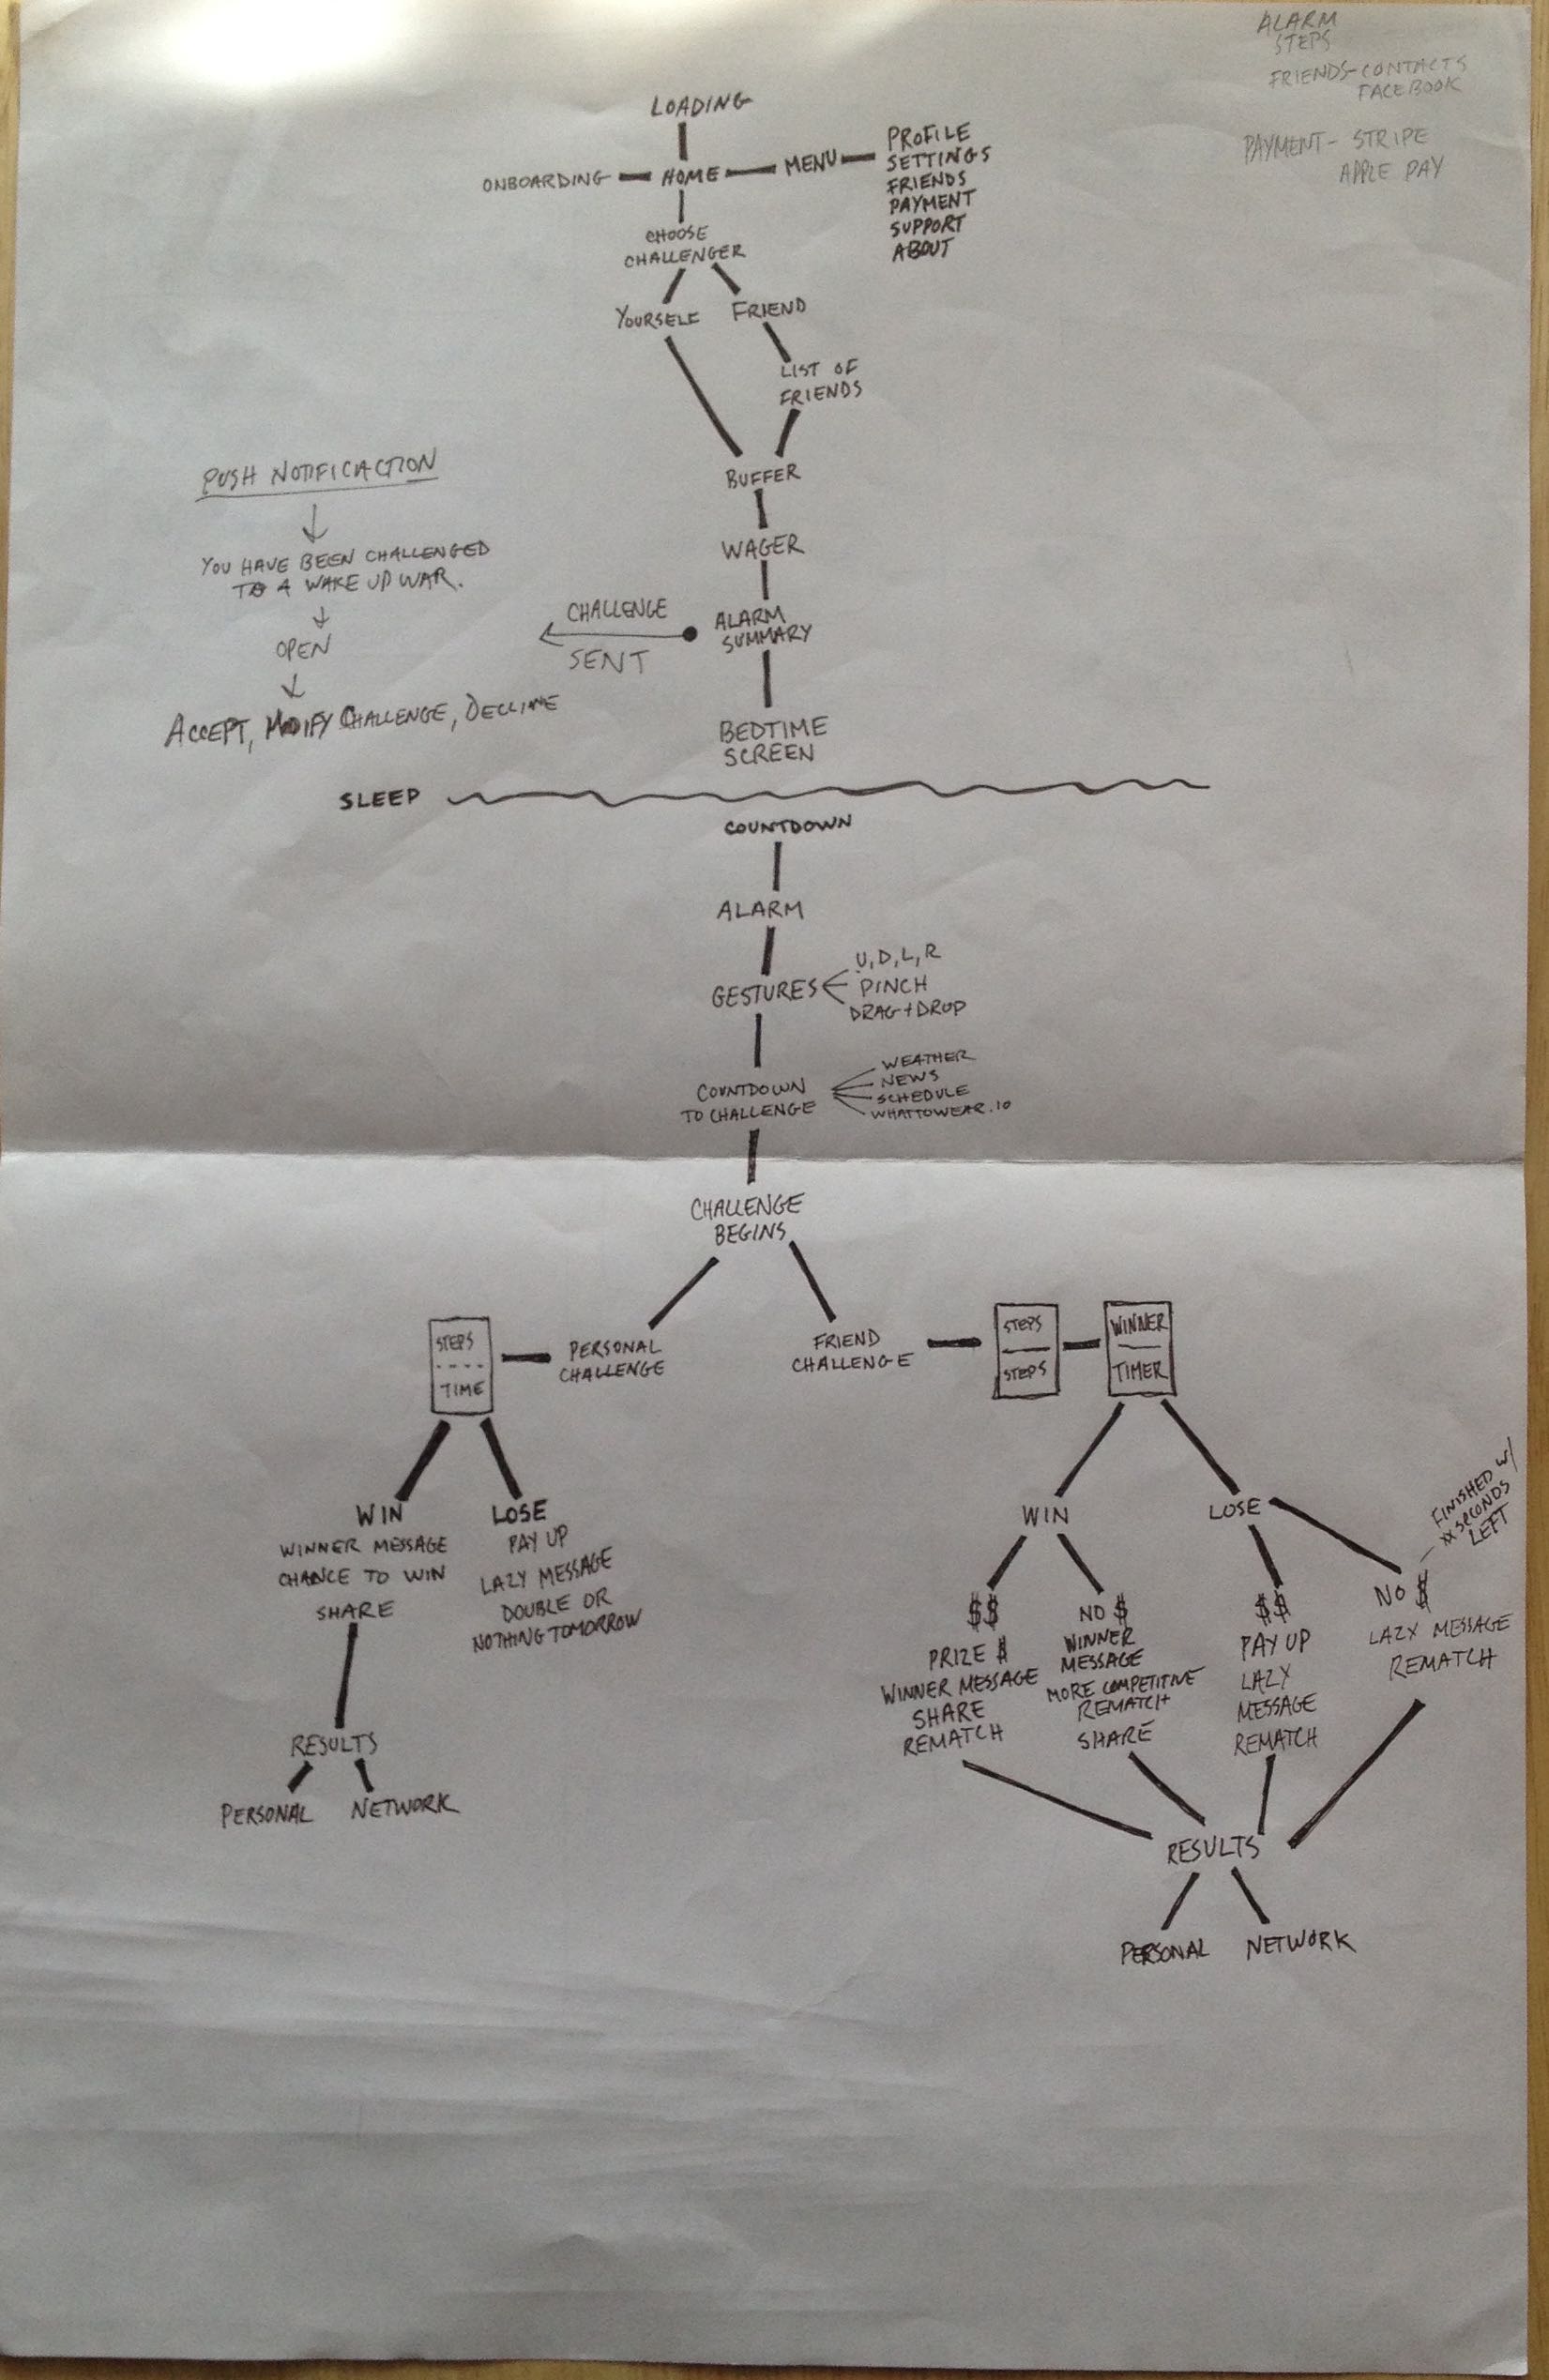 ALARM
STEPS
FRIENDS-CONTACTS
FACEBOOK
PAYMENT- STRIPE
APPLE PAY
LOADING
ONBOARDING
HOME
MENU
PROFILE
SETTINGS
FRIENDS
PAYMENT
SUPPORT
ABOUT
CHOOSE
CHALLENGER
YOURSELF
FRIEND
LIST OF
FRIENDS
BUFFER
WAGER
ALARM
SUMMARY
CHALLENGE
SENT
PUSH NOTIFICACTION
YOU HAVE BEEN CHALLENGED
TO A WAKE UP WAR.
OPEN
ACCEPT, MODIFY CHALLENGE, DECLINE
BEDTIME
SCREEN
SLEEP
COUNTDOWN
ALARM
GESTURES
U, D, L, R
PINCH
DRAG + DROP
COUNTDOWN
TO CHALLENGE
WEATHER
NEWS
SCHEDULE
WHATTOWEAR.IO
CHALLENGE
BEGINS
PERSONAL
CHALLENGE
STEPS
TIME
WIN
WINNER MESSAGE
CHANCE TO WIN
SHARE
LOSE
PAY UP
LAZY MESSAGE
DOUBLE OR
NOTHING TOMORROW
RESULTS
PERSONAL
NETWORK
FRIEND
CHALLENGE
STEPS
STEPS
WINNER
TIMER
WIN
LOSE
$$
PRIZE $
WINNER MESSAGE
SHARE
REMATCH
NO $
WINNER
MESSAGE
MORE COMPETITIVE
REMATCH
SHARE
$$
PAY UP
LAZY
MESSAGE
REMATCH
FINISHED W/
XX SECONDS
LEFT
NO $
LAZY MESSAGE
REMATCH
RESULTS
PERSONAL
NETWORK